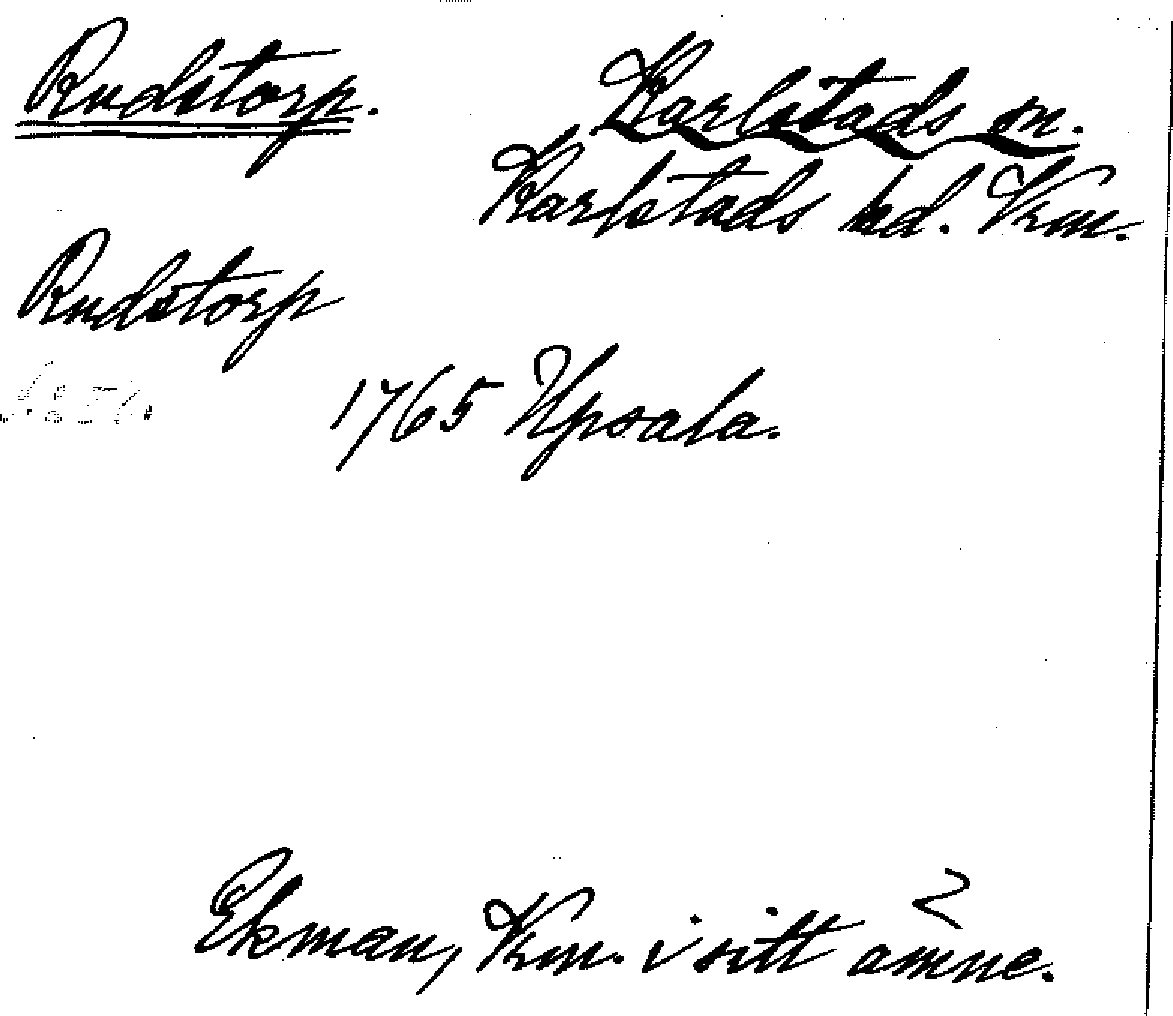 Rudstorp.
Karlstads sn.
Karlstads hd. Vrm.
Rudstorp
1765 Upsala.
Ekman, Vrm. i sitt ämne.